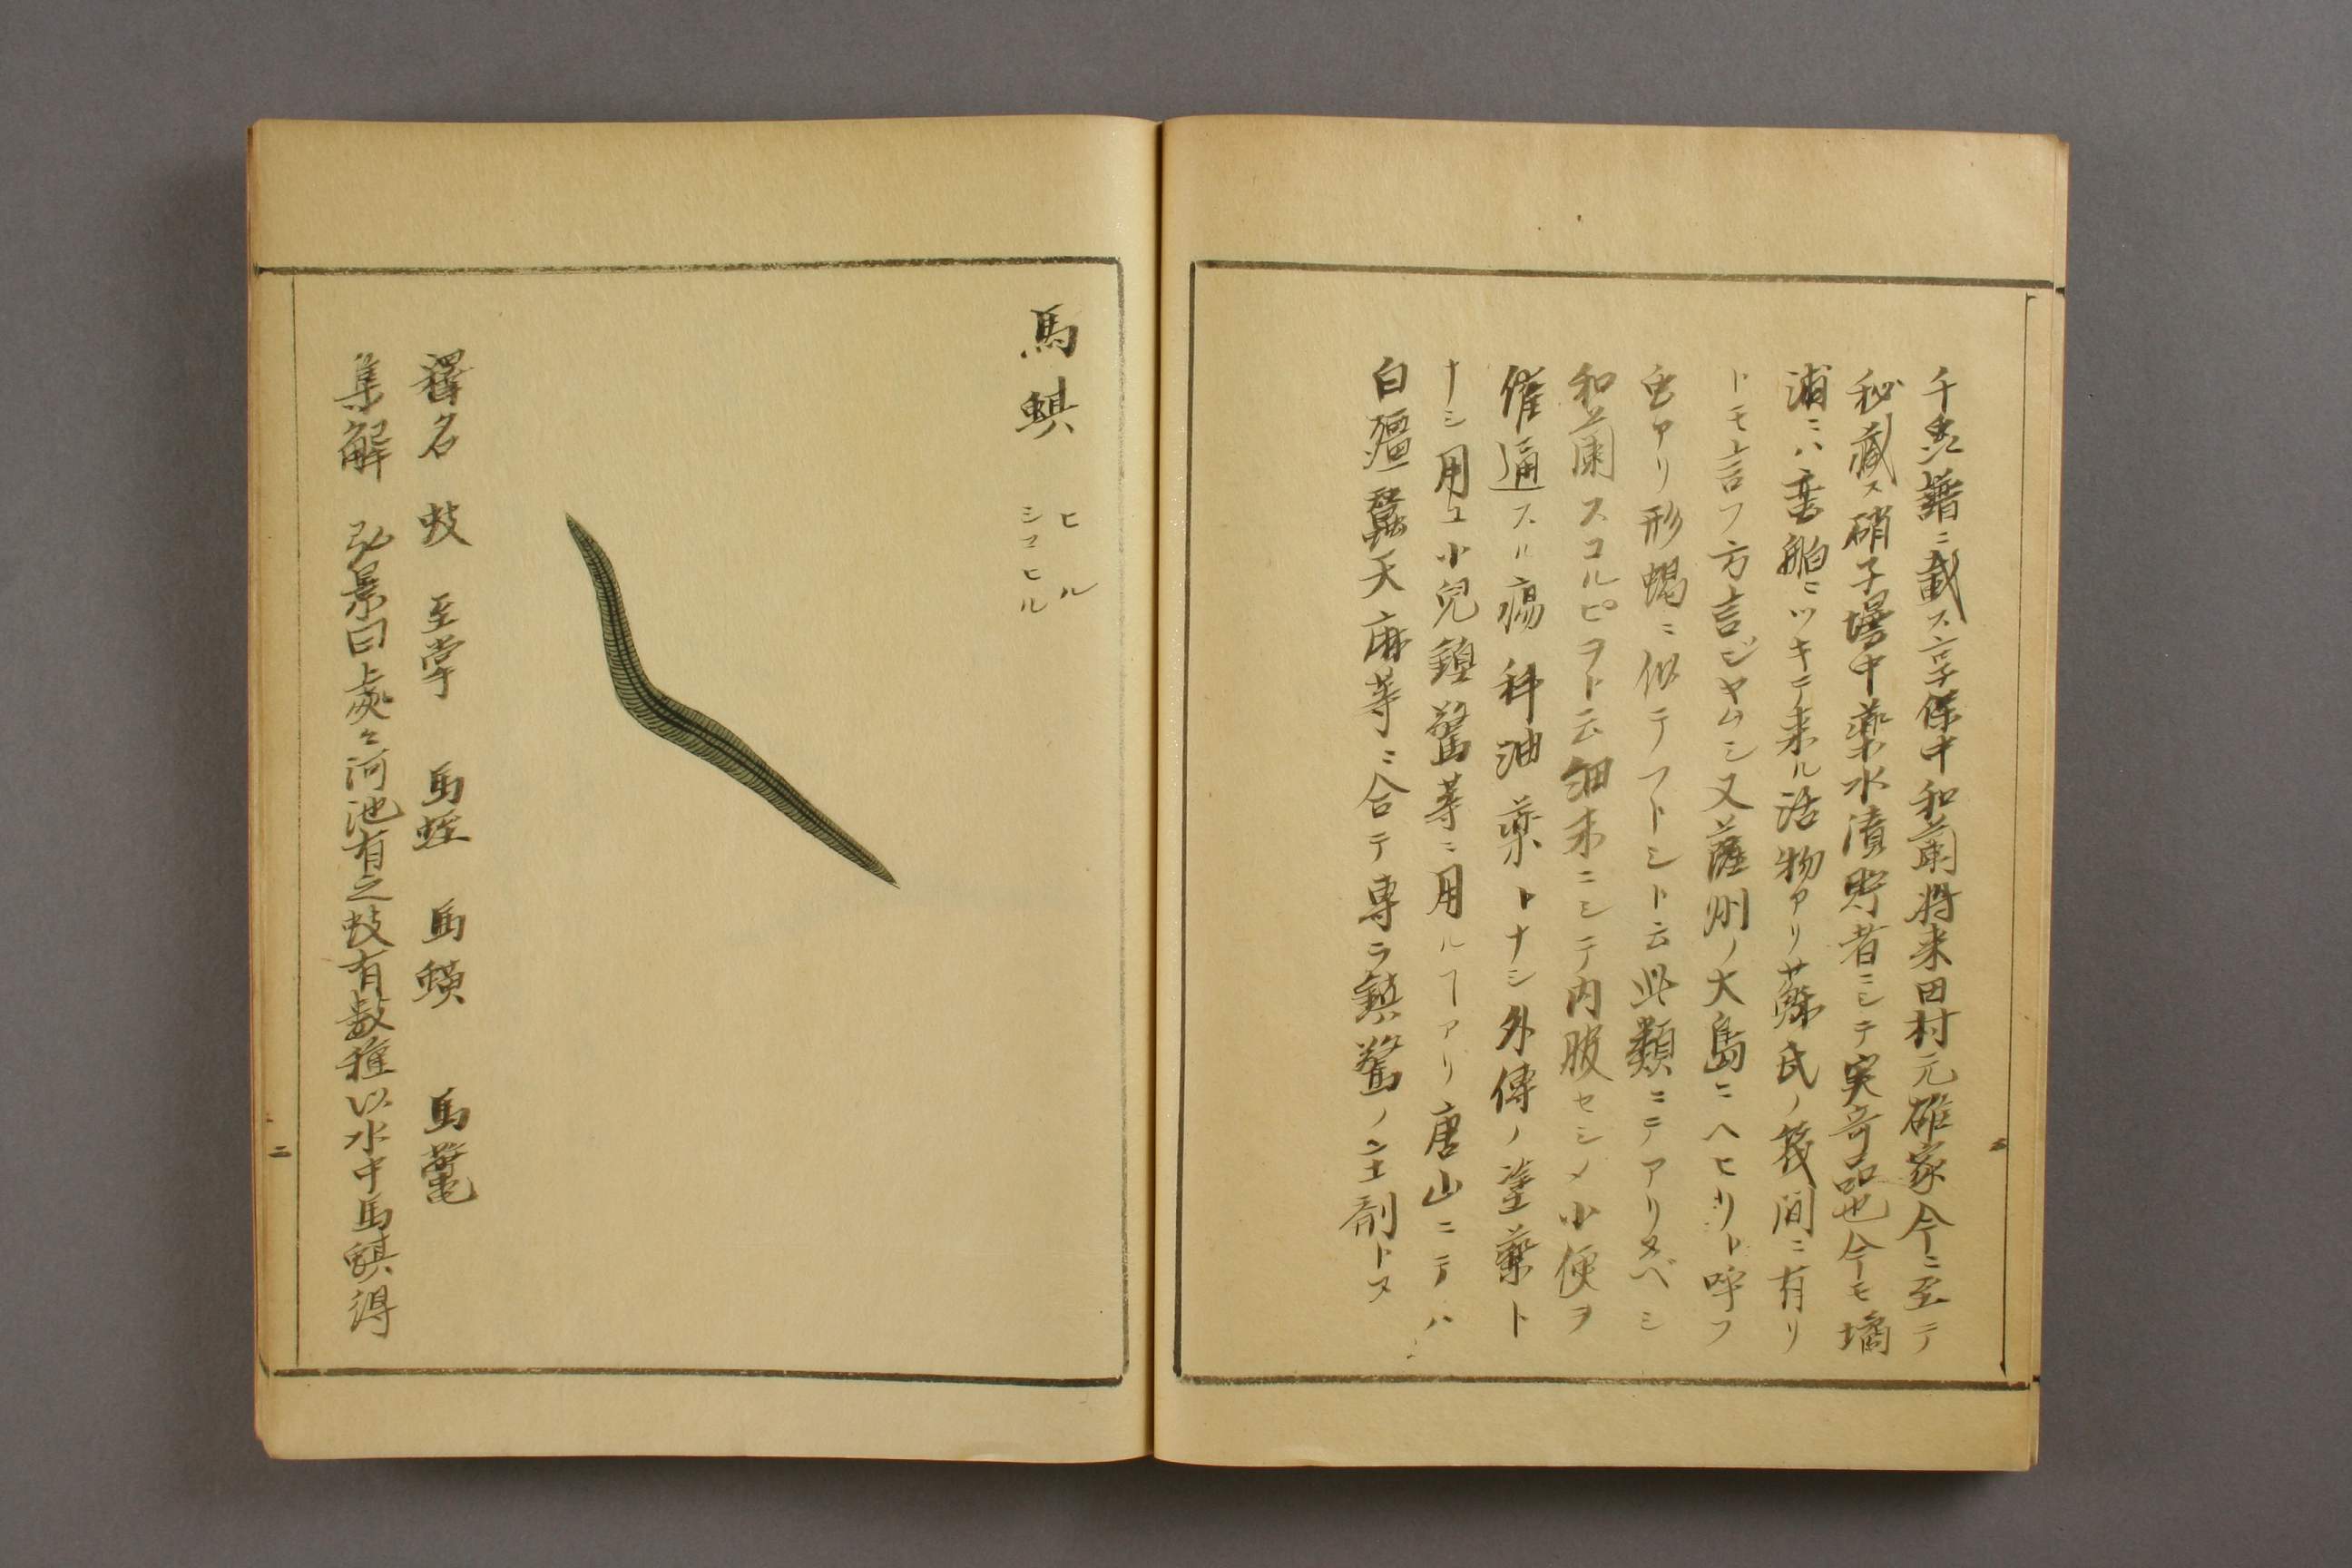 千蟲譜ニ載ス享保中和蘭将来田村元雄家今ニ至テ
秘蔵ス硝子壜中薬水漬貯者ニシテ実奇品也今モ
浦ニハ蛮舶ニツキテ来ル活物アリ蘓氏ノ筏間ニ有リ
トモ言フ方言ジヤムシ又薩州ノ大島ニヘヒリト呼フ
虫アリ形蝎ニ似テフトシト云此類ニテアリヌベシ
和蘭スコルピヲト云細末ニシテ内服セシメ小便ヲ
催通スル瘍科油薬トナシ外傅ノ塗薬ト
ナシ用ユ小児鎮驚等ニ用ルヿアリ唐山ニテハ
白殭蠶天麻等ニ合テ専ラ鎮驚ノ主剤トス
馬蜞
ヒル
シマヒル
釋名 蚑 至掌 馬蛭 馬蟥 馬鼈
集解 弘景曰處々河池有之蚑有数種以水中馬蜞得
二